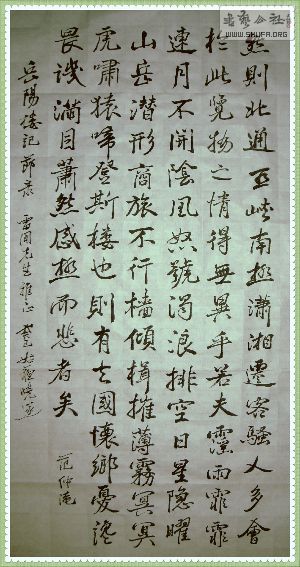 书艺公社
WWW.SHUFA.ORG
然則北通巫峽南極瀟湘遷客騷人多會
於此覽物之情得無異乎若夫霪雨霏霏
連月不開陰風怒號濁浪排空日星隱曜
山岳潛形商旅不行檣傾楫摧薄霧冥冥
虎嘯猿啼登斯樓也則有去國懷鄉憂讒
畏譏滿目蕭然感極而悲者矣
范仲淹
岳陽楼記節录 雷聞先生雅正